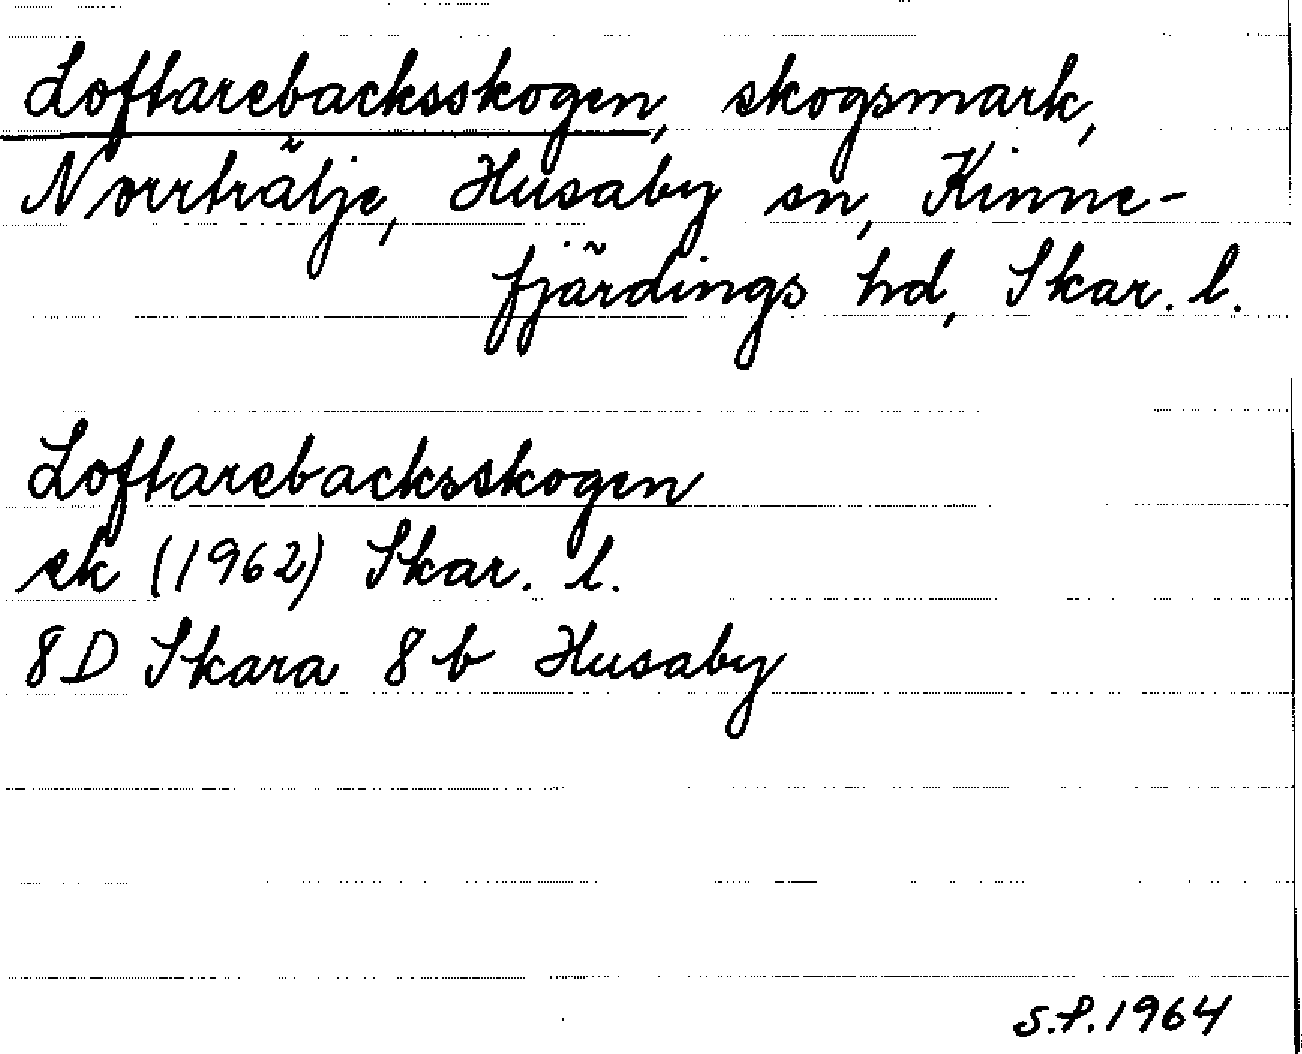 Loftarebacksskogen, skogsmark,
Norrträlje, Husaby sn, Kinne-
fjärdings hd, Skar. l.
Loftarebacksskogen
ek (1962) Skar. l.
8D Skara 8 b Husaby
S.P. 1964